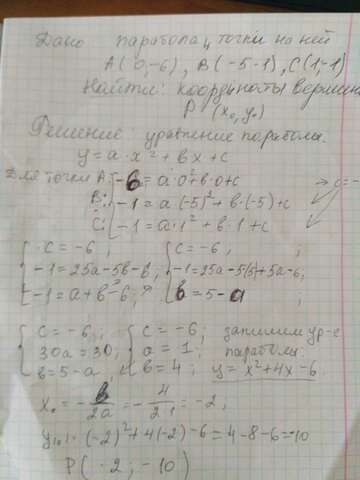 Дано парабола, точки на ней
A(0,-6), B(-5-1), C(1,-1)
Найти: координаты вершины
P (x₀, y₀)
Решение: уравнение параболы.
y = a·x² + bx + c
Для точки A: -6 = a·0² + b·0 + c → c=-
B: -1 = a(-5)² + b·(-5) + c
C: -1 = a·1² + b·1 + c
c = -6, c = -6, ;
-1 = 25a - 5b - 6, -1 = 25a - 5(5) + 5a - 6;
-1 = a + b - 6; b = 5 - a ;
c = -6, c = -6; запишем ур-е
30a = 30; a = 1; параболы.
b = 5 - a, b = 4; y = x² + 4x - 6
x₀ = -b/2a = -4/2·1 = -2,
y₀ = (-2)² + 4(-2) - 6 = 4 - 8 - 6 = -10
P(-2; -10)